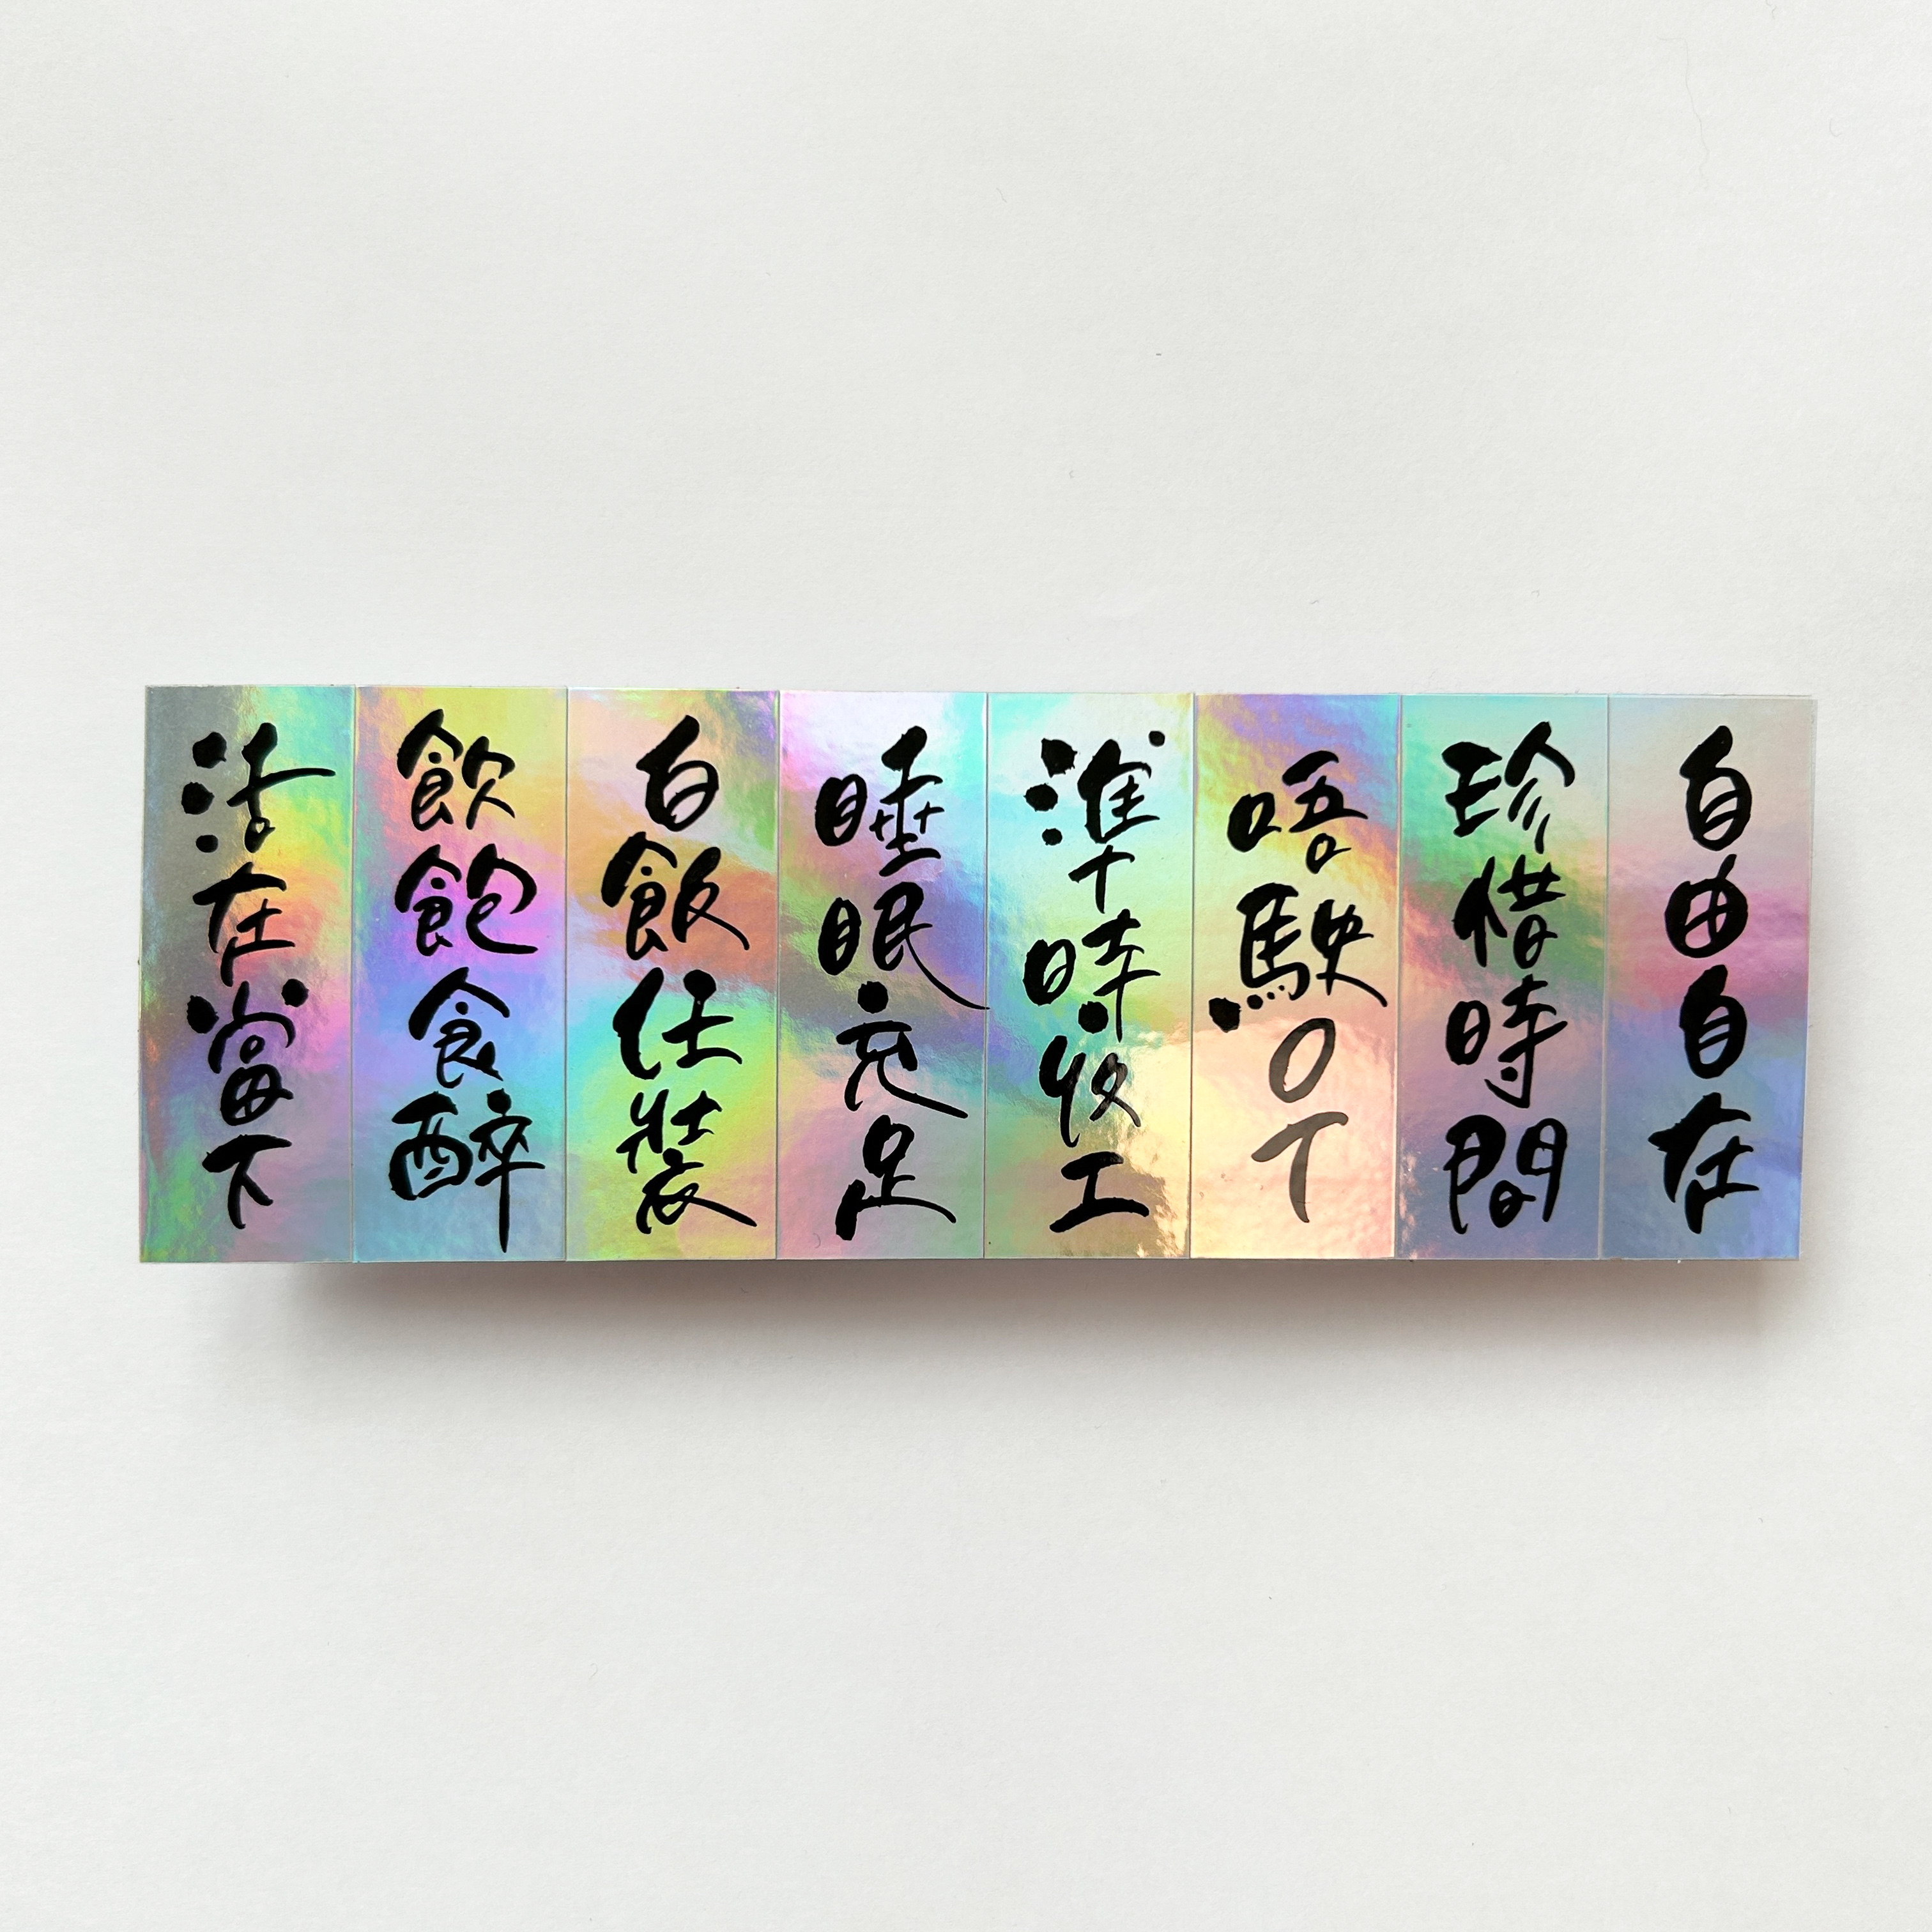 自由自在
珍惜時間
唔駛OT
準時收工
睡眠充足
白飯任裝
飲飽食醉
活在當下